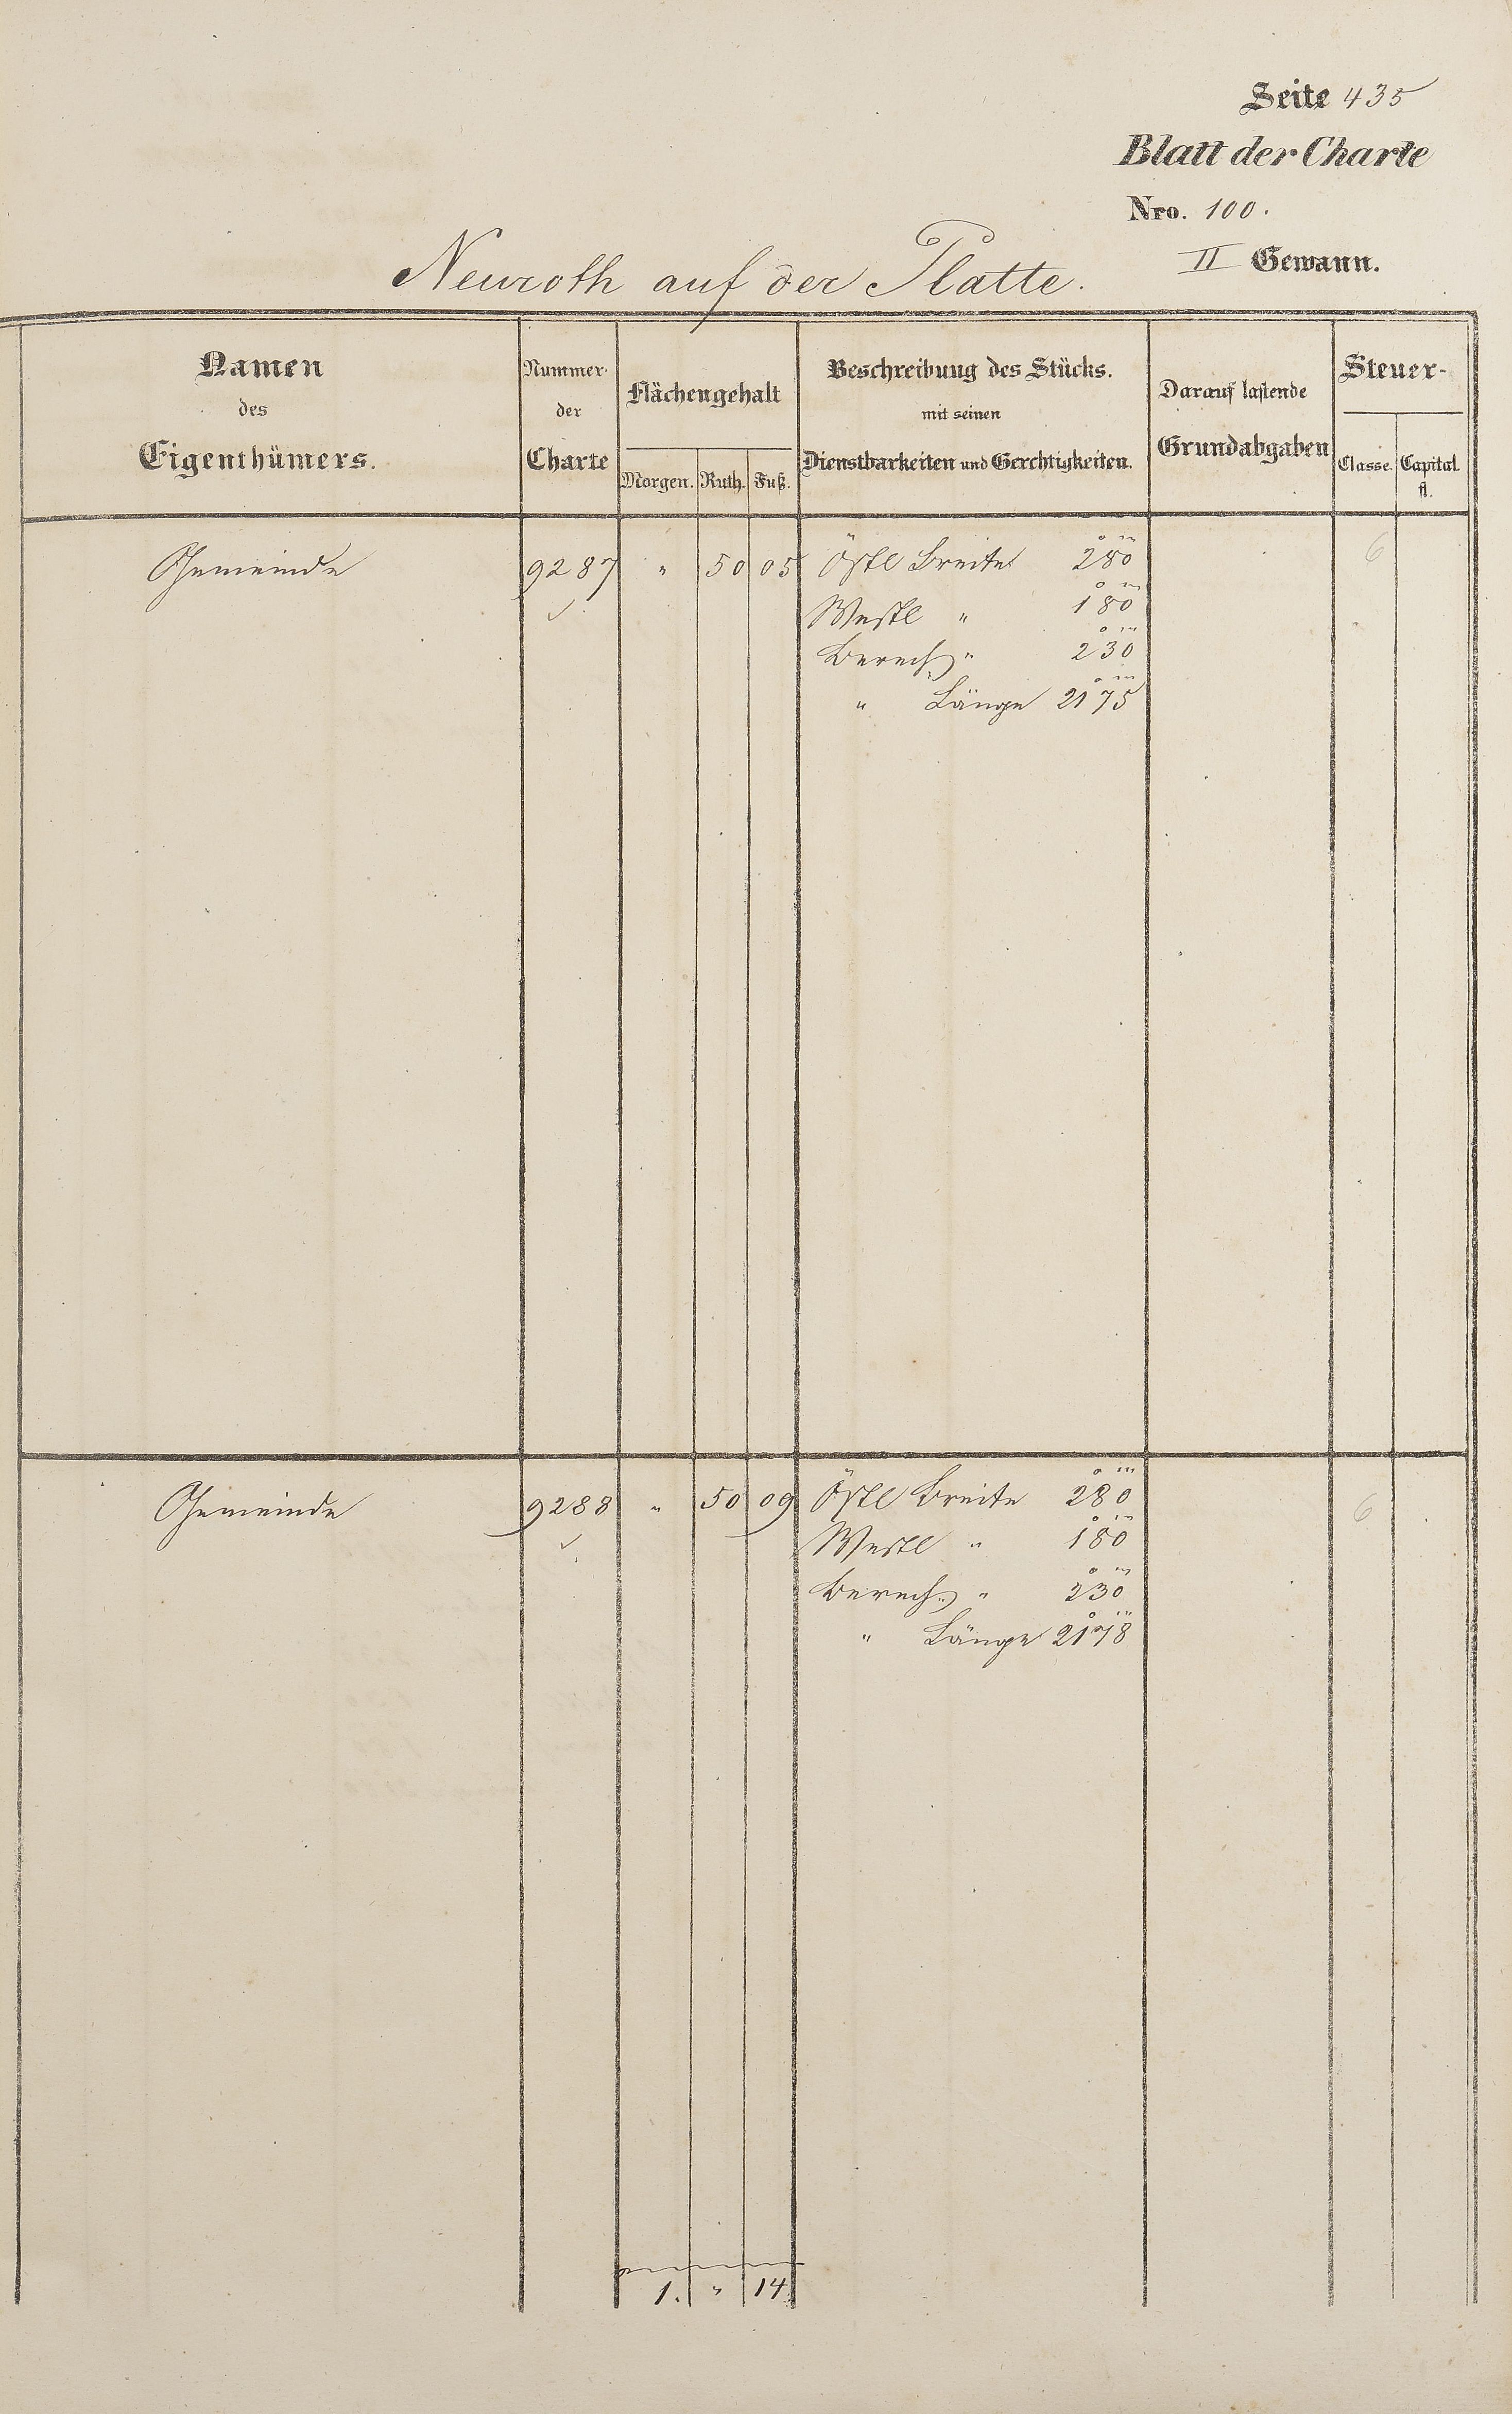 Seite 435
Blatt der Charte
Nro. 100.
II Gewann.
Neuroth auf der Platte.
Namen des Eigenthümers.
Nummer der Charte
Flächengehalt
Morgen. Ruth. Fuß.
Beschreibung des Stücks. mit seinen Dienstbarkeiten und Gerechtigkeiten.
Darauf lastende Grundabgaben
Steuer-
Classe. Capital fl.
Gemeinde 9287 " 50 05 Östl Breite 2°80''' 6
✓ Westl " 1°80'''
Berech. " 2°30'''
" Länge 21°75'''
Gemeinde 9288 " 50 09 Östl Breite 2°80''' 6
✓ Westl " 1°80'''
Berech. " 2°30'''
" Länge 21°78'''
1. " 14